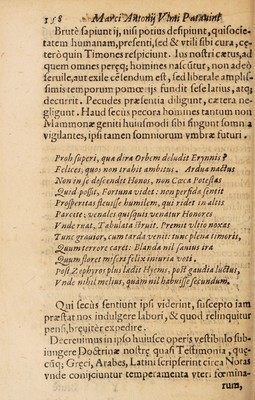 158 Marci Antonij Vlmi Patauini
Brutè sapiunt ij, nisi potius desipiunt, qui societatem
humanam, presenti, sed & vtili sibi cura, ceteròquin
Timones respiciunt. Ius nostri cætus, ad
quem omnes pereq; homines nascũtur, non adeò
seruile, aut exile cẽsendum est, sed liberale amplissimis
temporum pomœrijs fundit sese latius, atq;
decurrit. Pecudes præsentia diligunt, cætera negligunt.
Haud secus pecora homines tantum non
Mammonæ geniti huiusmodi sibi fingunt somnia
vigilantes, ipsi tamen somniorum vmbræ futuri.
Proh superi, qua dira Orbem deludit Erynnis?
Felices, quos non trahit ambitus. Ardua nactus
Non in se descendit Honos, non Cæca Potestas
Quid possit, Fortuna videt: non perfida sentit
Prosperitas fleuisse humilem, qui ridet in altis
Parcite: venales quisquis venatur Honores
Vnde ruat, Tabulata struit. Premit vltio noxas
Tunc grauior, cum tarda venit: tunc plena timoris,
Quum terrore caret: Blanda nil sæuius ira
Quum floret miseri felix iniuria voti.
Post Zephyros plus lædit Hyems, post gaudia luctus,
Vnde nihil melius, quam nil habuisse secundum.
Qui secùs sentiunt ipsi viderint, suscepto iam
præstat nos indulgere labori, & quod relinquitur
pensi, breuiter expedire.
Decreuimus in ipso huiusce operis vestibulo subiungere
Doctrinæ nostrę quasi Testimonia, quęcũq;
Gręci, Arabes, Latini scripserint circa Notas
vnde conijciuntur temperamenta vteri fœminarum,